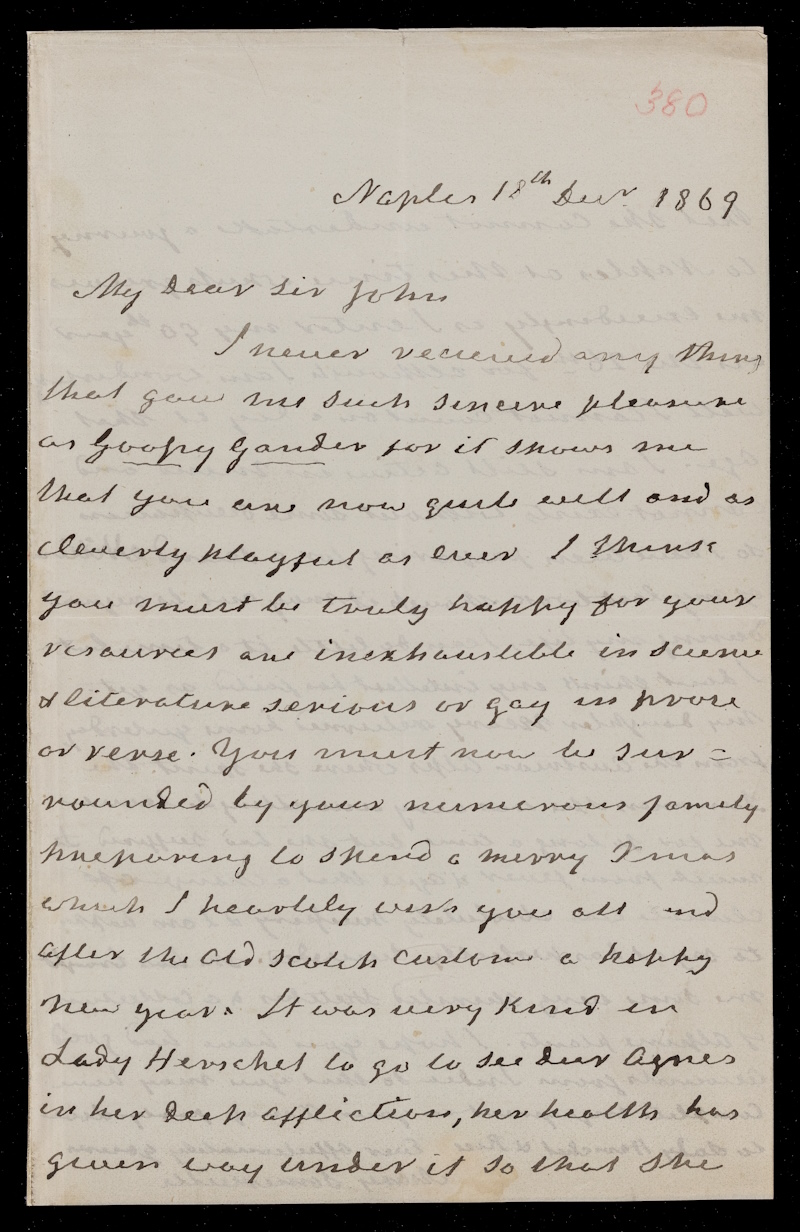 380
Naples 18th Decr 1869
My dear Sir John
I never recieved any thing
that gave me such sincere pleasure
as Goosy Gander for it shows me
that you are now quite well and as
cleverly playful as ever I think
you must be truly happy for your
resources are inexhaustible in science
& literature serious or gay in prose
or verse. You must now be sur=
rounded by your numerous family
preparing to spend a merry Xmas
which I heartily wish you all and
after the old Scotch custom a happy
new year. It was very kind in
Lady Herschel to go to see dear Agnes
in her deep affliction, her health has
given way under it so that she